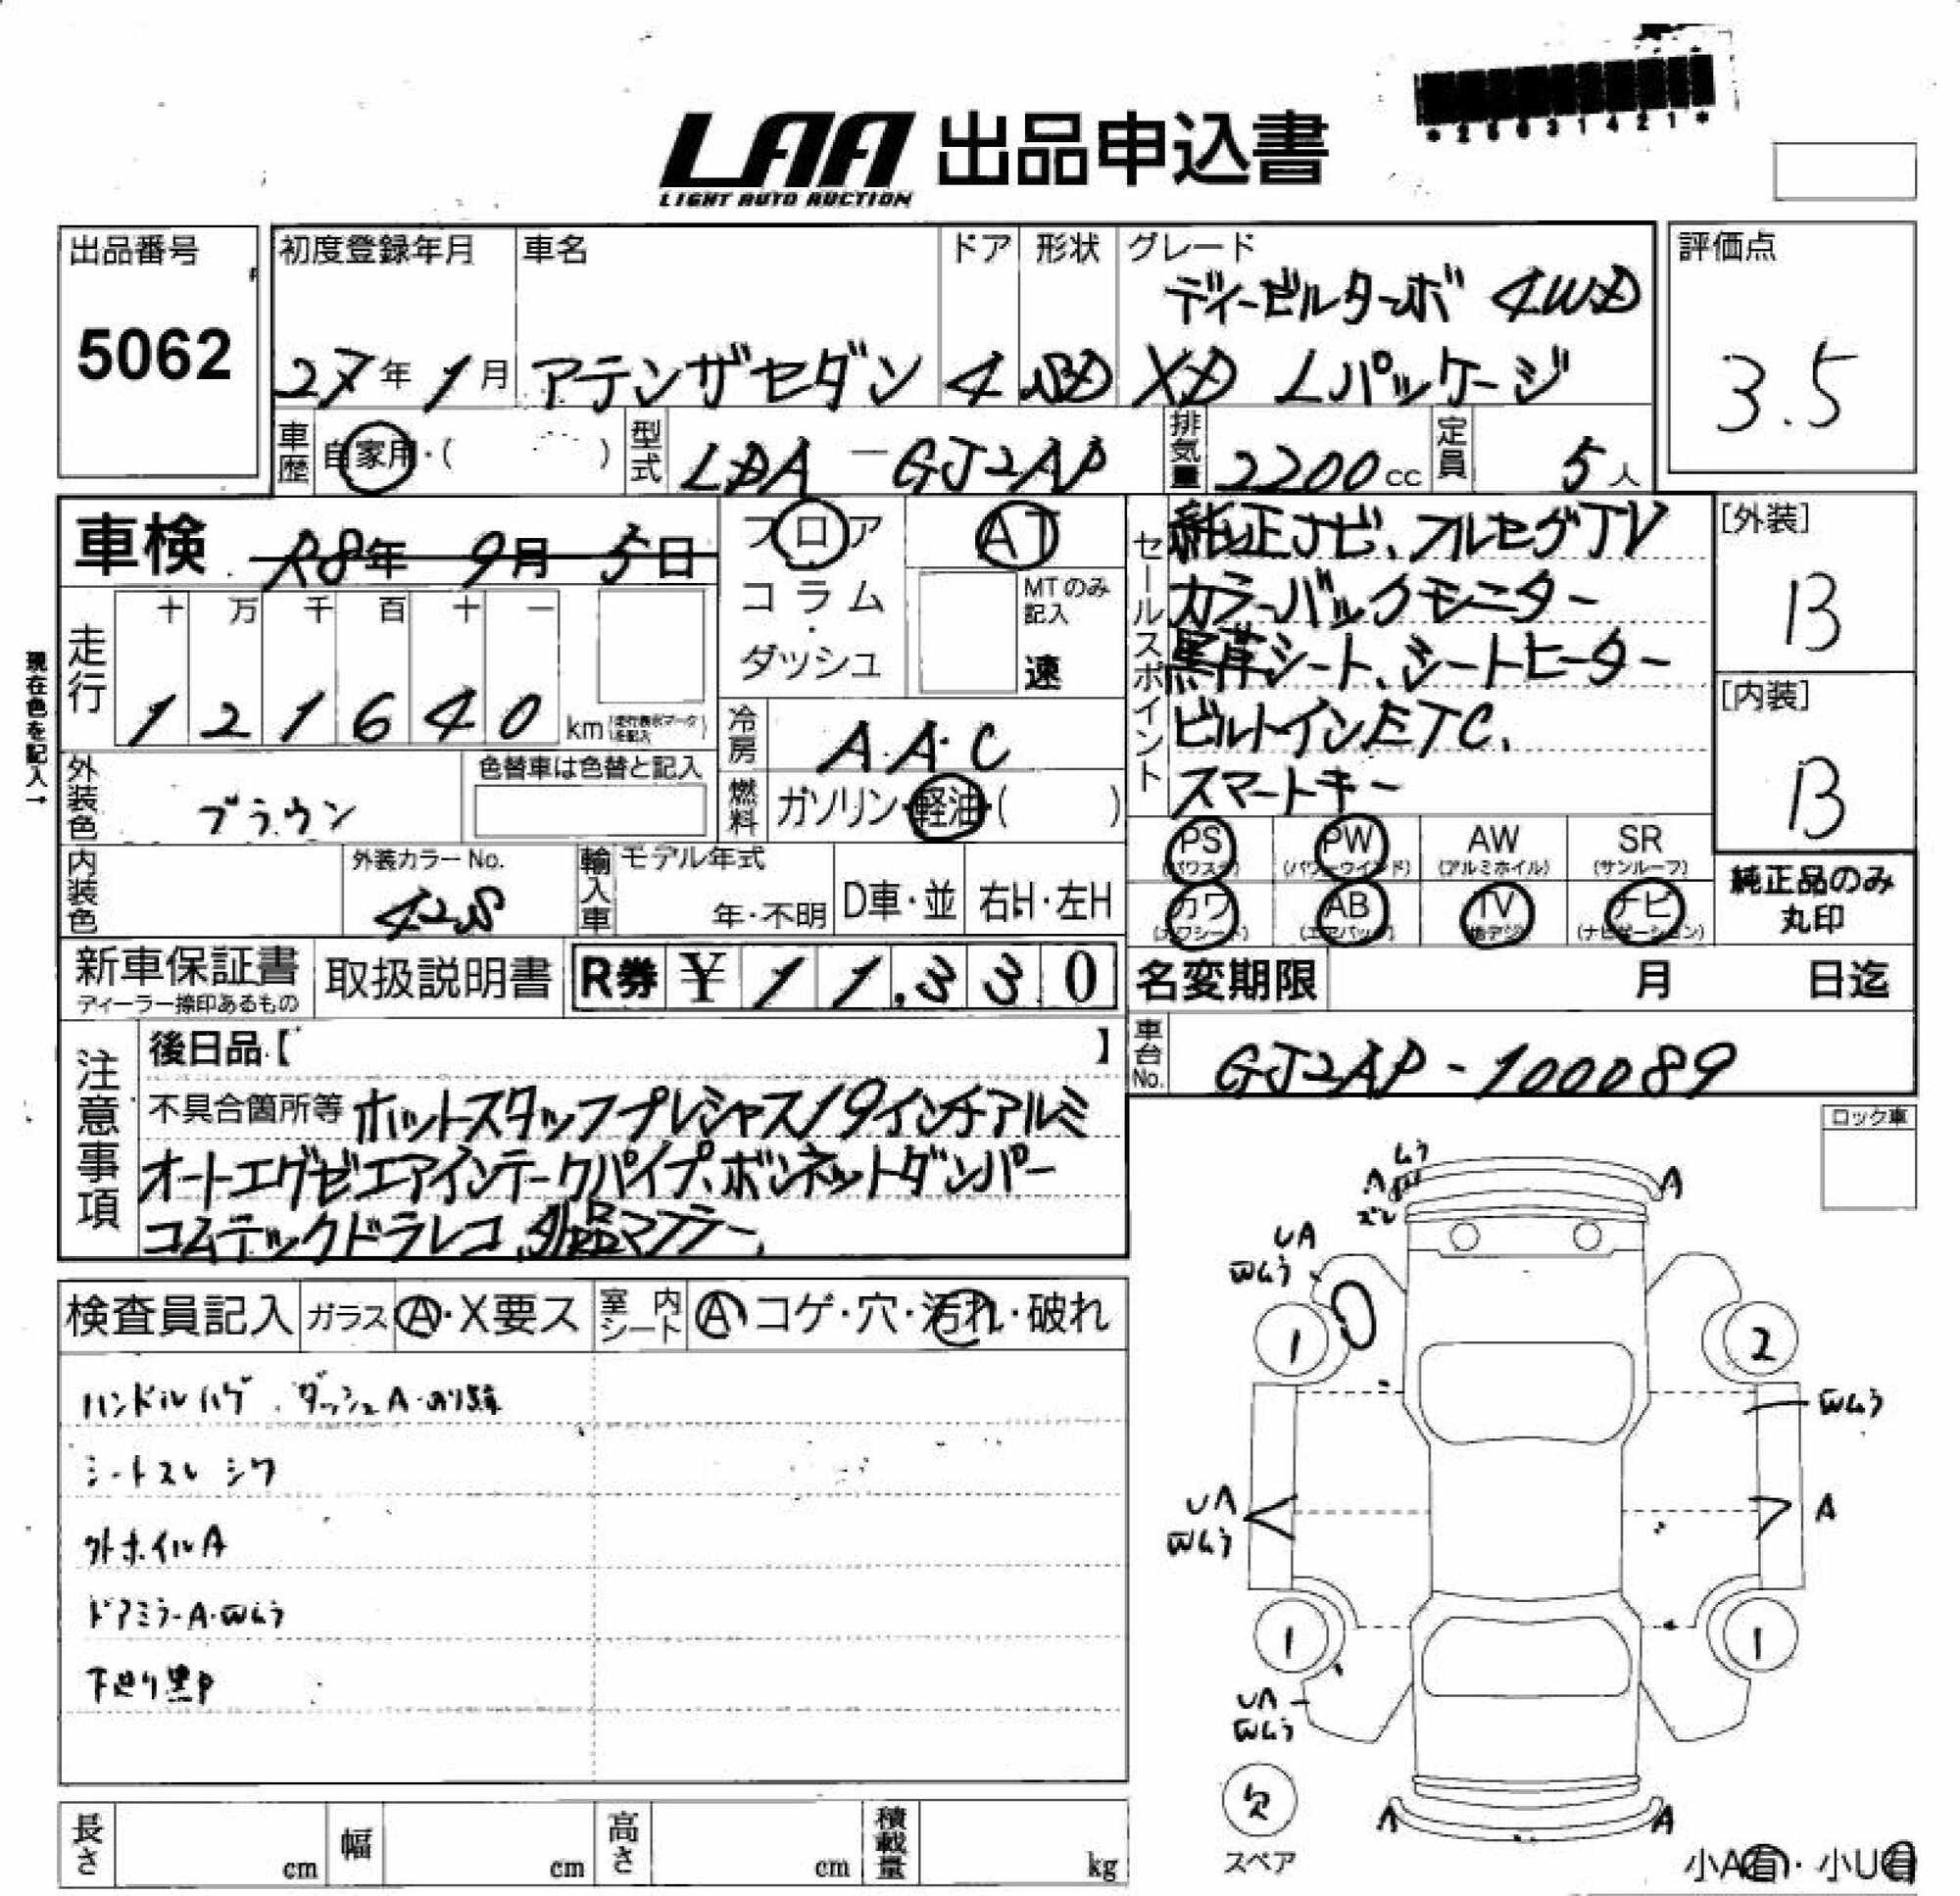 *26031421*
LAA 出品申込書
LIGHT AUTO AUCTION
出品番号
5062
初度登録年月
27年 1月
車名
アテンザセダン
ドア
4
形状
SD
グレード
ディーゼルターボ 4WD
XD Lパッケージ
評価点
3.5
車歴 自家用・( )
型式 LDA-GJ2AP
排気量 2200cc
定員 5人
車検 R8年 9月 5日
フロア
コラム
・
ダッシュ
AT
MTのみ記入
速
セールスポイント
純正ナビ、フルセグTV
カラーバックモニター
黒革シート、シートヒーター
ビルトインETC、
スマートキー
[外装]
B
[内装]
B
現在色を記入→
走行
十 万 千 百 十 一
1 2 1 6 4 0 km
(走行表示マークを記入)
冷房 AAC
燃料 ガソリン・軽油・( )
外装色 ブラウン
色替車は色替と記入
内装色
外装カラーNo.
42S
輸入車
モデル年式
年・不明
D車・並
右H・左H
PS (パワステ)
PW (パワーウインド)
AW (アルミホイル)
SR (サンルーフ)
カワ (カワシート)
AB (エアバック)
TV (地デジ)
ナビ (ナビゲーション)
純正品のみ
丸印
新車保証書
ディーラー捺印あるもの
取扱説明書
R券 ¥ 11,330
名変期限 月 日迄
車台No. GJ2AP-100089
注意事項
後日品【 】
不具合箇所等 ホットスタッフプレシャス19インチアルミ
オートエグゼエアインテークパイプ、ボンネットダンパー
コムテックドラレコ、外品マフラー、
ロック車
検査員記入
ガラス A・X要ス
室内シート A コゲ・穴・汚れ・破れ
ハンドルハゲ・ダッシュA・のり跡
シートスレ シワ
外ホイルA
ドアミラーA・wムラ
下廻り黒P
ムラ
A
ズレ
A
UA
wムラ
1
2
wムラ
UA
wムラ
A
1
1
UA
wムラ
欠
スペア
A
A
長さ cm
幅 cm
高さ cm
積載量 kg
小A有・小U有